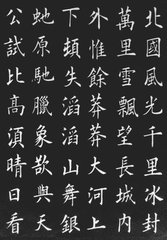 北國風光千里冰封
萬里雪飄望長城內
外惟餘莽莽大河上
下頓失滔滔山舞銀
虵原馳臘象欲與天
公試比高須晴日看